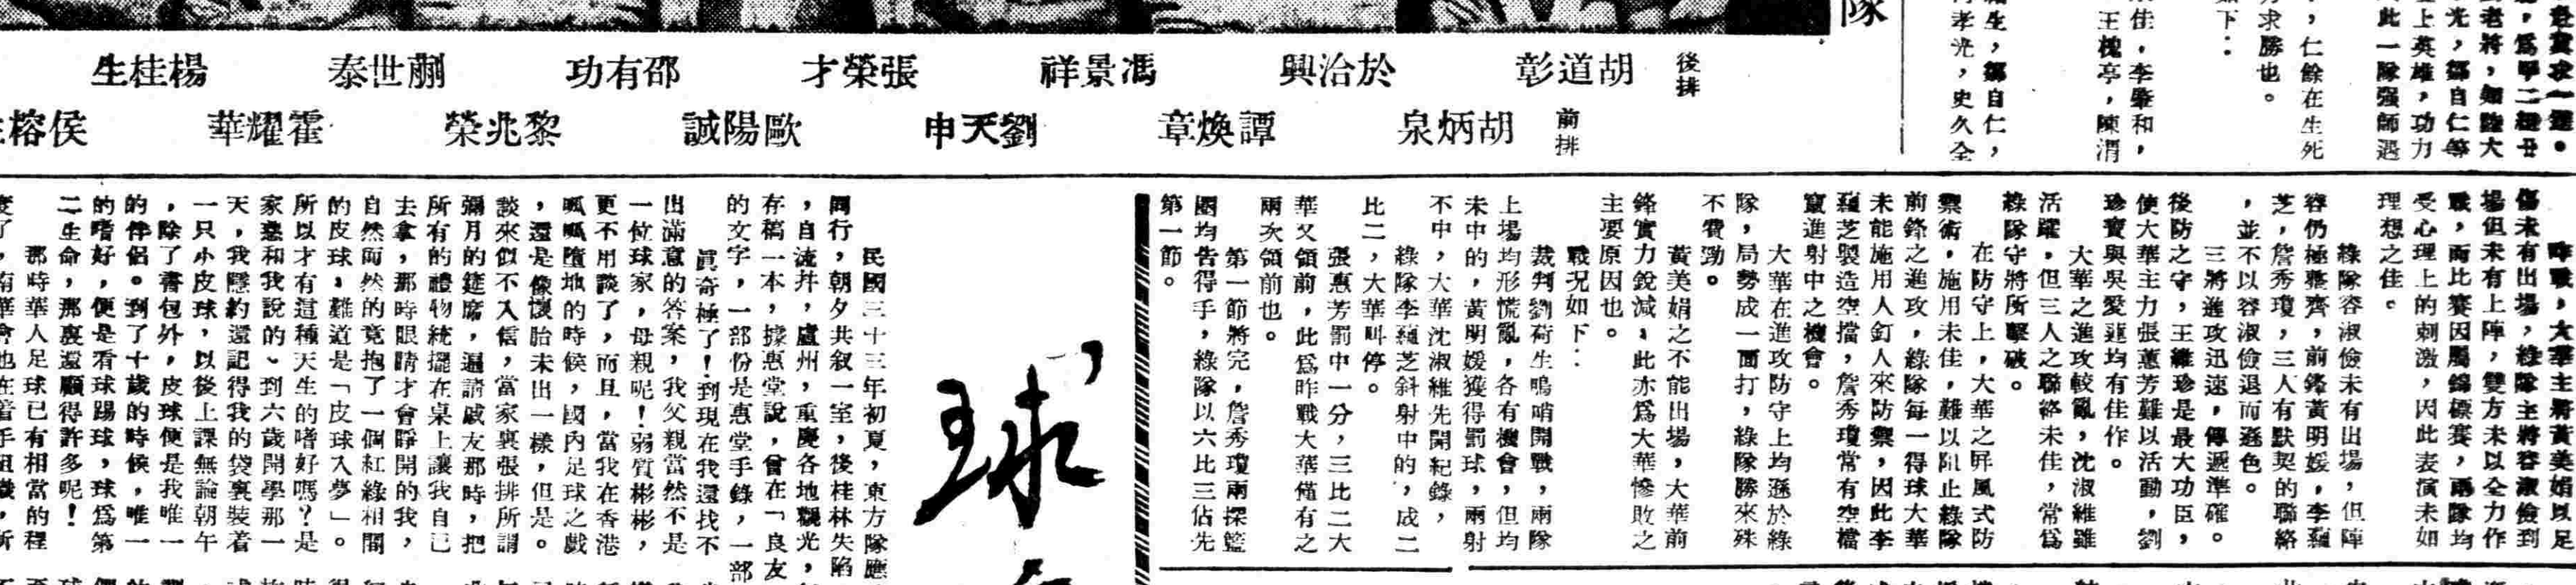 ，為甲二組廿
老將，如陸大
光，鄒自仁等
上英雄，功力
此一隊强師遇
，仁餘在生死
求勝也。
如下：
佳，李肇和，
王槐亭，陳渭
生，鄒自仁，
孝光，史久全
隊
後排 胡道彰 於洽興 馮景祥 張榮才 邵有功 蒯世泰 楊桂生
前排 胡炳泉 譚煥章 劉天申 歐陽誠 黎兆榮 霍耀華 侯榕
昨戰，大華主將黃美娟以足
傷未有出場，綠隊主將容淑儉到
場但未有上陣，雙方未以全力作
戰，而比賽因屬錦標賽，兩隊均
受心理上的刺激，因此表演未如
理想之佳。
綠隊容淑儉未有出場，但陣
容仍極整齊，前鋒黃明媛，李蘊
芝，詹秀瓊，三人有默契的聯絡
，並不以容淑儉退而遜色。
三將進攻迅速，傳遞準確。
後防之守，王維珍是最大功臣，
使大華主力張蕙芳難以活動，劉
珍寶與吳愛蓮均有佳作。
大華之進攻較亂，沈淑維雖
活躍，但三人之聯絡未佳，常為
綠隊守將所擊破。
在防守上，大華之屏風式防
禦術，施用未佳，難以阻止綠隊
前鋒之進攻，綠隊每一得球大華
未能施用人釘人來防禦，因此李
蘊芝製造空擋，詹秀瓊常有空檔
竄進射中之機會。
大華在進攻防守上均遜於綠
隊，局勢成一面打，綠隊勝來殊
不費勁。
黃美娟之不能出場，大華前
鋒實力銳減，此亦為大華慘敗之
主要原因也。
戰況如下：
裁判劉荷生鳴哨開戰，兩隊
上場均形慌亂，各有機會，但均
未中的，黃明媛獲得罰球，兩射
不中，大華沈淑維先開紀錄，
綠隊李蘊芝斜射中的，成二
比二，大華叫停。
張惠芳罰中一分，三比二大
華又領前，此為昨戰大華僅有之
兩次領前也。
第一節將完，詹秀瓊兩探籃
圈均告得手，綠隊以六比三佔先
第一節。
球
民國三十三年初夏，東方隊應
同行，朝夕共叙一室，後桂林失陷
，自流井，盧州，重慶各地觀光，
存稿一本，據惠堂說，曾在「良友
的文字，一部份是惠堂手錄，一部
眞奇極了！到現在我還找不
出滿意的答案，我父親當然不是
一位球家，母親呢！弱質彬彬，
更不用談了，而且，當我在香港
呱呱墮地的時候，國內足球之戲
，還是像懷胎未出一樣，但是。
談來似不入信，當家裏張排所謂
彌月的筵席，遍請戚友那時，把
所有的禮物統擺在桌上讓我自己
去拿，那時眼睛才會睜開的我，
自然而然的竟抱了一個紅綠相間
的皮球，難道是「皮球入夢」。
所以才有這種天生的嗜好嗎？是
家慈和我說的、到六歲開學那一
天，我隱約還記得我的袋裏裝着
一只小皮球，以後上課無論朝午
，除了書包外，皮球便是我唯一
的伴侶。到了十歲的時候，唯一
的嗜好，便是看球踢球，球爲第
二生命，那裏還顧得許多呢！
那時華人足球已有相當的程
度了，南華會也在着手組織，所